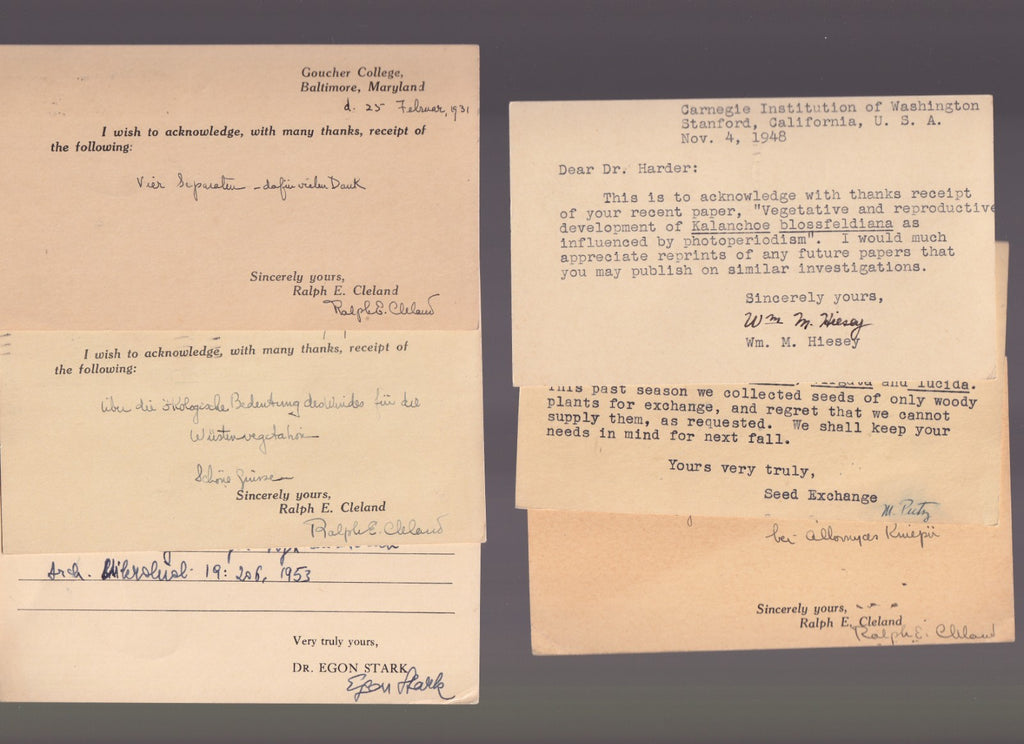 Goucher College,
Baltimore, Maryland
d. 25 Februar, 1931
I wish to acknowledge, with many thanks, receipt of
the following:
Vier Separaten – dafür vielen Dank
Sincerely yours,
Ralph E. Cleland
Ralph E. Cleland
I wish to acknowledge, with many thanks, receipt of
the following:
Über die ökologische Bedeutung des Windes für die
Wüstenvegetation
Schöne Grüsse
Sincerely yours,
Ralph E. Cleland
Ralph E. Cleland
Arch. Mikrobiol. 19: 206, 1953
Very truly yours,
DR. EGON STARK
Egon Stark
Carnegie Institution of Washington
Stanford, California, U. S. A.
Nov. 4, 1948
Dear Dr. Harder:
This is to acknowledge with thanks receipt
of your recent paper, "Vegetative and reproductive
development of Kalanchoe blossfeldiana as
influenced by photoperiodism". I would much
appreciate reprints of any future papers that
you may publish on similar investigations.
Sincerely yours,
Wm. M. Hiesey
Wm. M. Hiesey
and lucida.
This past season we collected seeds of only woody
plants for exchange, and regret that we cannot
supply them, as requested. We shall keep your
needs in mind for next fall.
Yours very truly,
Seed Exchange
bei Allomyces Kniepii
Sincerely yours,
Ralph E. Cleland
Ralph E. Cleland